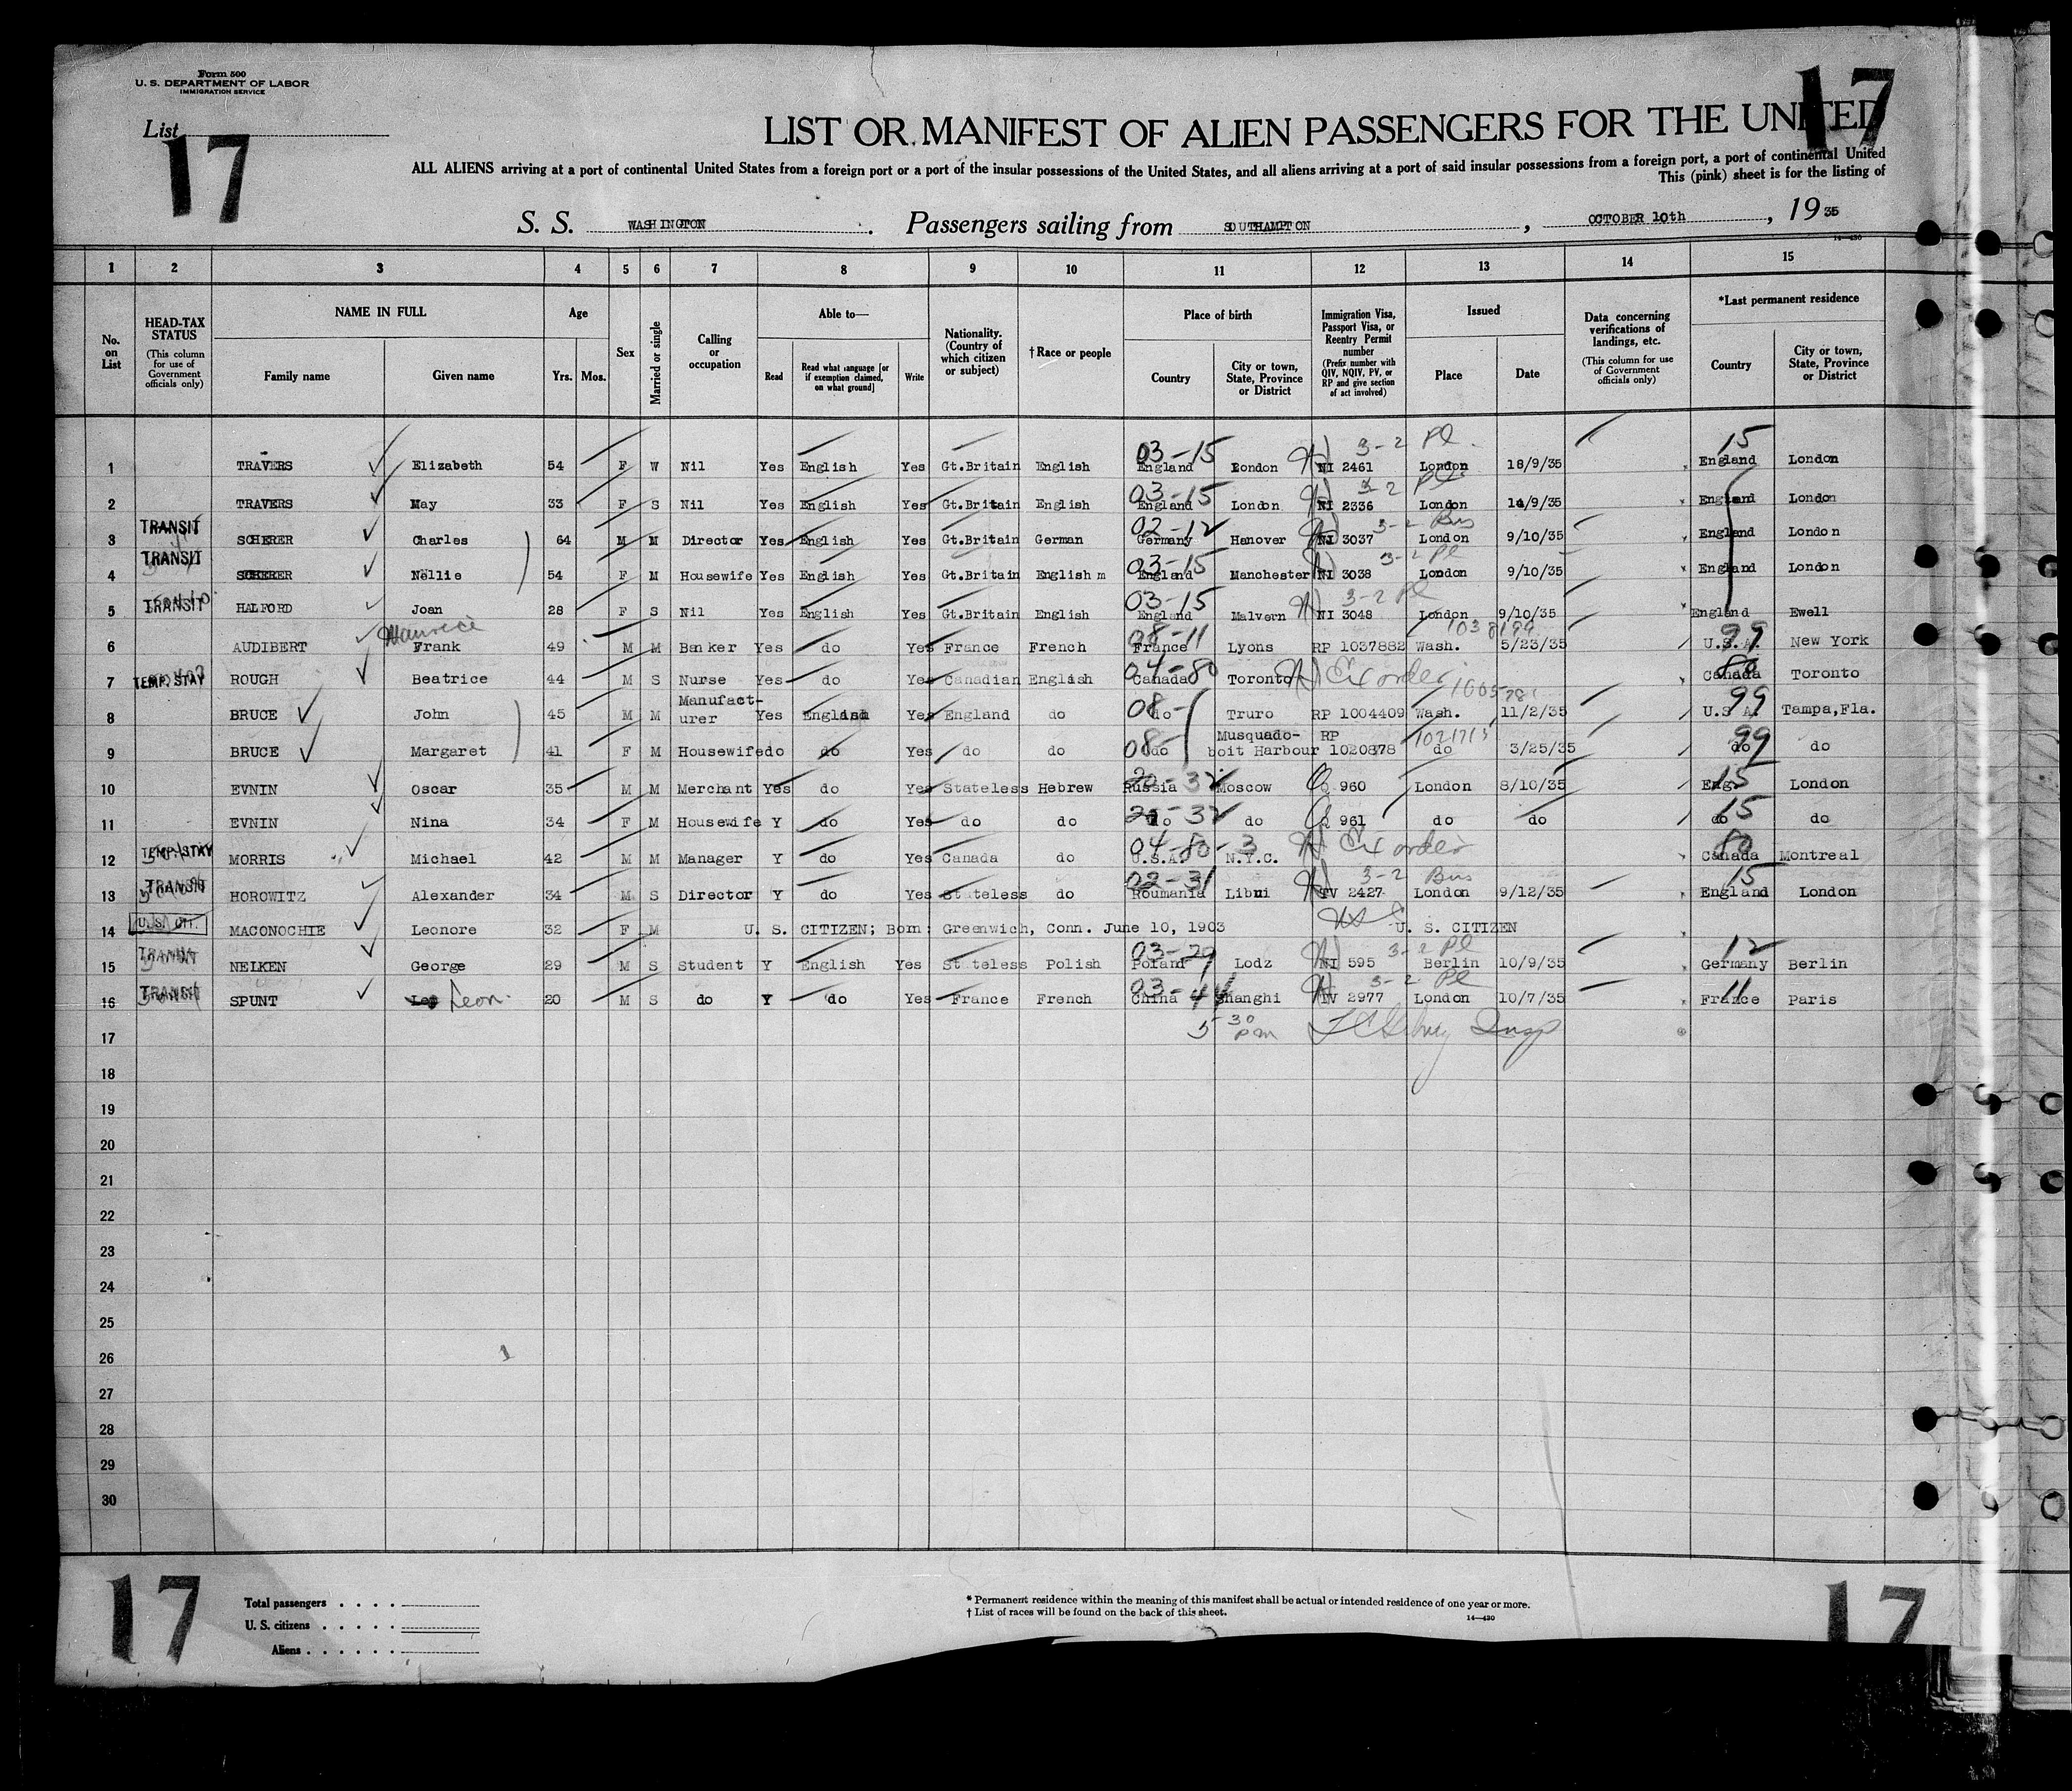 Form 500
U. S. DEPARTMENT OF LABOR
IMMIGRATION SERVICE
List
17
17
LIST OR MANIFEST OF ALIEN PASSENGERS FOR THE UNITED
ALL ALIENS arriving at a port of continental United States from a foreign port or a port of the insular possessions of the United States, and all aliens arriving at a port of said insular possessions from a foreign port, a port of continental United
This (pink) sheet is for the listing of
S. S. WASHINGTON. Passengers sailing from SOUTHAMPTON, OCTOBER 10th, 19 35
14—430
1 2 3 4 5 6 7 8 9 10 11 12 13 14 15
No. on List
HEAD-TAX STATUS (This column for use of Government officials only)
NAME IN FULL
Family name
Given name
Age
Yrs. Mos.
Sex
Married or single
Calling or occupation
Able to—
Read
Read what language [or if exemption claimed, on what ground]
Write
Nationality. (Country of which citizen or subject)
†Race or people
Place of birth
Country
City or town, State, Province or District
Immigration Visa, Passport Visa, or Reentry Permit number (Prefix number with QIV, NQIV, PV, or RP and give section of act involved)
Issued
Place
Date
Data concerning verifications of landings, etc. (This column for use of Government officials only)
*Last permanent residence
Country
City or town, State, Province or District
03-15 3-2 Pl. 15
1 TRAVERS Elizabeth 54 F W Nil Yes English Yes Gt.Britain English England London NI 2461 London 18/9/35 England London
03-15 3-2 Pl
2 TRAVERS May 33 F S Nil Yes English Yes Gt.Britain English England London NI 2336 London 14/9/35 England London
TRANSIT 02-12 3-2 Bus
3 SCHERER Charles 64 M M Director Yes English Yes Gt.Britain German Germany Hanover NI 3037 London 9/10/35 England London
TRANSIT 03-15 3-2 Pl
4 SCHERER Nellie 54 F M Housewife Yes English Yes Gt.Britain English m England Manchester NI 3038 London 9/10/35 England London
TRANSIT 03-15 3-2 Pl
5 HALFORD Joan 28 F S Nil Yes English Yes Gt.Britain English England Malvern NI 3048 London 9/10/35 England Ewell
Maurice 08-11 99
6 AUDIBERT Frank 49 M M Banker Yes do Yes France French France Lyons RP 1037882 Wash. 5/23/35 U.S.A. New York
04-80 Ex order 80
7 TEMP. STAY ROUGH Beatrice 44 M S Nurse Yes do Yes Canadian English Canada Toronto Canada Toronto
08- 99
8 BRUCE John 45 M M Manufacturer Yes English Yes England do do Truro RP 1004409 Wash. 11/2/35 U.S.A. Tampa,Fla.
08- 99
9 BRUCE Margaret 41 F M Housewife do do Yes do do do Musquadoboit Harbour RP 1020878 do 3/25/35 do do
32 15
10 EVNIN Oscar 35 M M Merchant Yes do Yes Stateless Hebrew Russia Moscow Q 960 London 8/10/35 Eng. London
32 15
11 EVNIN Nina 34 F M Housewife Y do Yes do do do do Q 961 do do do do
TEMP. STAY 04-80-3 Ex order 80
12 MORRIS Michael 42 M M Manager Y do Yes Canada do U.S.A. N.Y.C. Canada Montreal
TRANSIT 02-31 3-2 Bus 15
13 HOROWITZ Alexander 34 M S Director Y do Yes Stateless do Roumania Libni TV 2427 London 9/12/35 England London
U.S. CIT.
14 MACONOCHIE Leonore 32 F M U. S. CITIZEN; Born: Greenwich, Conn. June 10, 1903 U. S. CITIZEN
TRANSIT 03-29 3-2 Pl 12
15 NELKEN George 29 M S Student Y English Yes Stateless Polish Poland Lodz NI 595 Berlin 10/9/35 Germany Berlin
TRANSIT 03-44 3-2 Pl 11
16 SPUNT Leo Leon. 20 M S do Y do Yes France French China Shanghi TV 2977 London 10/7/35 France Paris
5 30 pm Insp
17
18
19
20
21
22
23
24
25
26
27
28
29
30
17
Total passengers
U. S. citizens
Aliens
* Permanent residence within the meaning of this manifest shall be actual or intended residence of one year or more.
† List of races will be found on the back of this sheet.
14—430
17